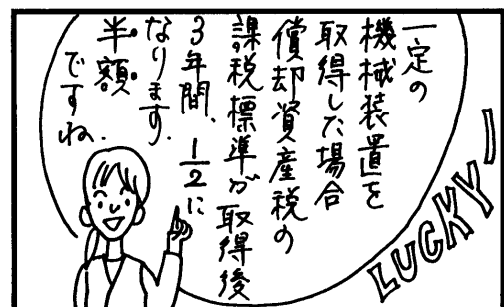 一定の
機械装置を
取得した場合
償却資産税の
課税標準が取得後
3年間、1/2に
なります.
半額
ですね.
LUCKY!